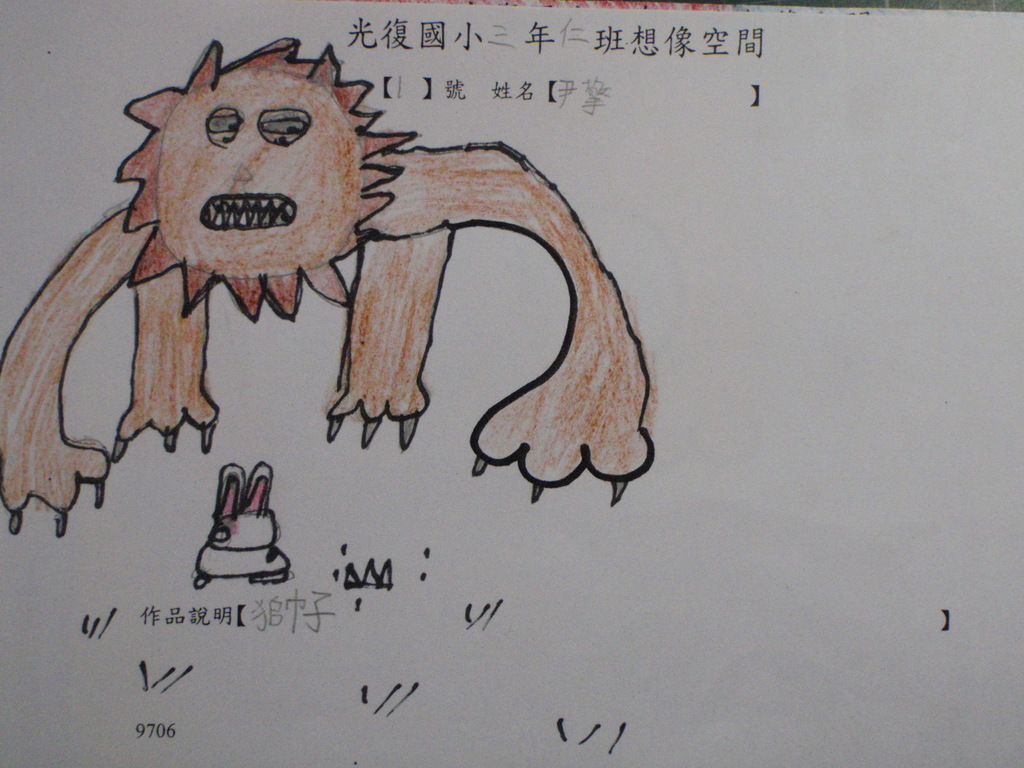 光復國小三年仁班想像空間
【1】號 姓名【尹擎】
作品說明【獅子】
9706